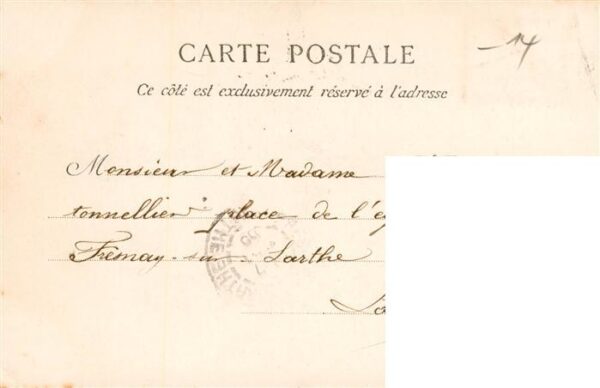 -14
CARTE POSTALE
Ce côté est exclusivement réservé à l'adresse
Monsieur et Madame
tonnellier place de l'ég
Fresnay-sur Sarthe